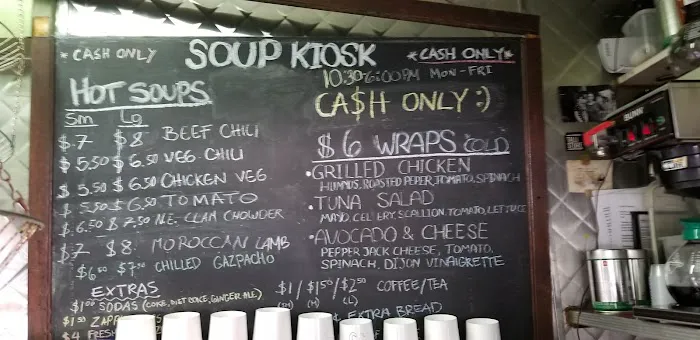 * CASH ONLY
SOUP KIOSK
* CASH ONLY *
10:30-6:00PM MON-FRI
CA$H ONLY :)
HOT SOUPS
Sm Lg
$7 $8 BEEF CHILI
$5.50 $6.50 VEG CHILI
$5.50 $6.50 CHICKEN VEG
$5.50 $6.50 TOMATO
$6.50 $7.50 N.E. CLAM CHOWDER
$7 $8 MOROCCAN LAMB
$6.50 $7.50 CHILLED GAZPACHO
EXTRAS
$1.00 SODAS (COKE, DIET COKE, GINGER ALE)
$1.50 ZAPP
$4 FRESH
$6 WRAPS COLD
• GRILLED CHICKEN
HUMMUS, ROASTED PEPER, TOMATO, SPINACH
• TUNA SALAD
MAYO, CELERY, SCALLION, TOMATO, LETTUCE
• AVOCADO & CHEESE
PEPPER JACK CHEESE, TOMATO,
SPINACH, DIJON VINAIGRETTE
$1 / $1.50 / $2.50 COFFEE/TEA
(SM) (M) (L)
EXTRA BREAD
BUNN